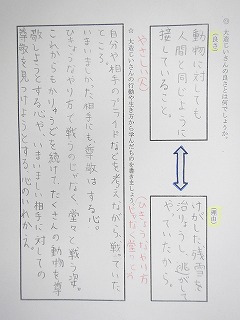 ◎ 大造じいさんの良さとは何でしょうか。
【良さ】
動物に対しても
人間と同じように
接していること。
やさしい心
【理由】
けがした残雪を
治りょうして、逃がして
やっていたから。
ひきょうなやり方
じゃなく堂々と
☆ 大造じいさんの行動や生き方から学んだものを書きましょう。
自分や相手のプライドなどを考えながら、戦っていた
ところ。
いまいましいた相手にも尊敬はする心。
ひきょうなやり方で戦うのじゃなく、堂々と戦う姿。
これからもかりゅうどを続けて、たくさんの動物を尊
敬しようとする心や、いまいましい相手に対しての
尊敬を見つけようとする心のいれかえ。